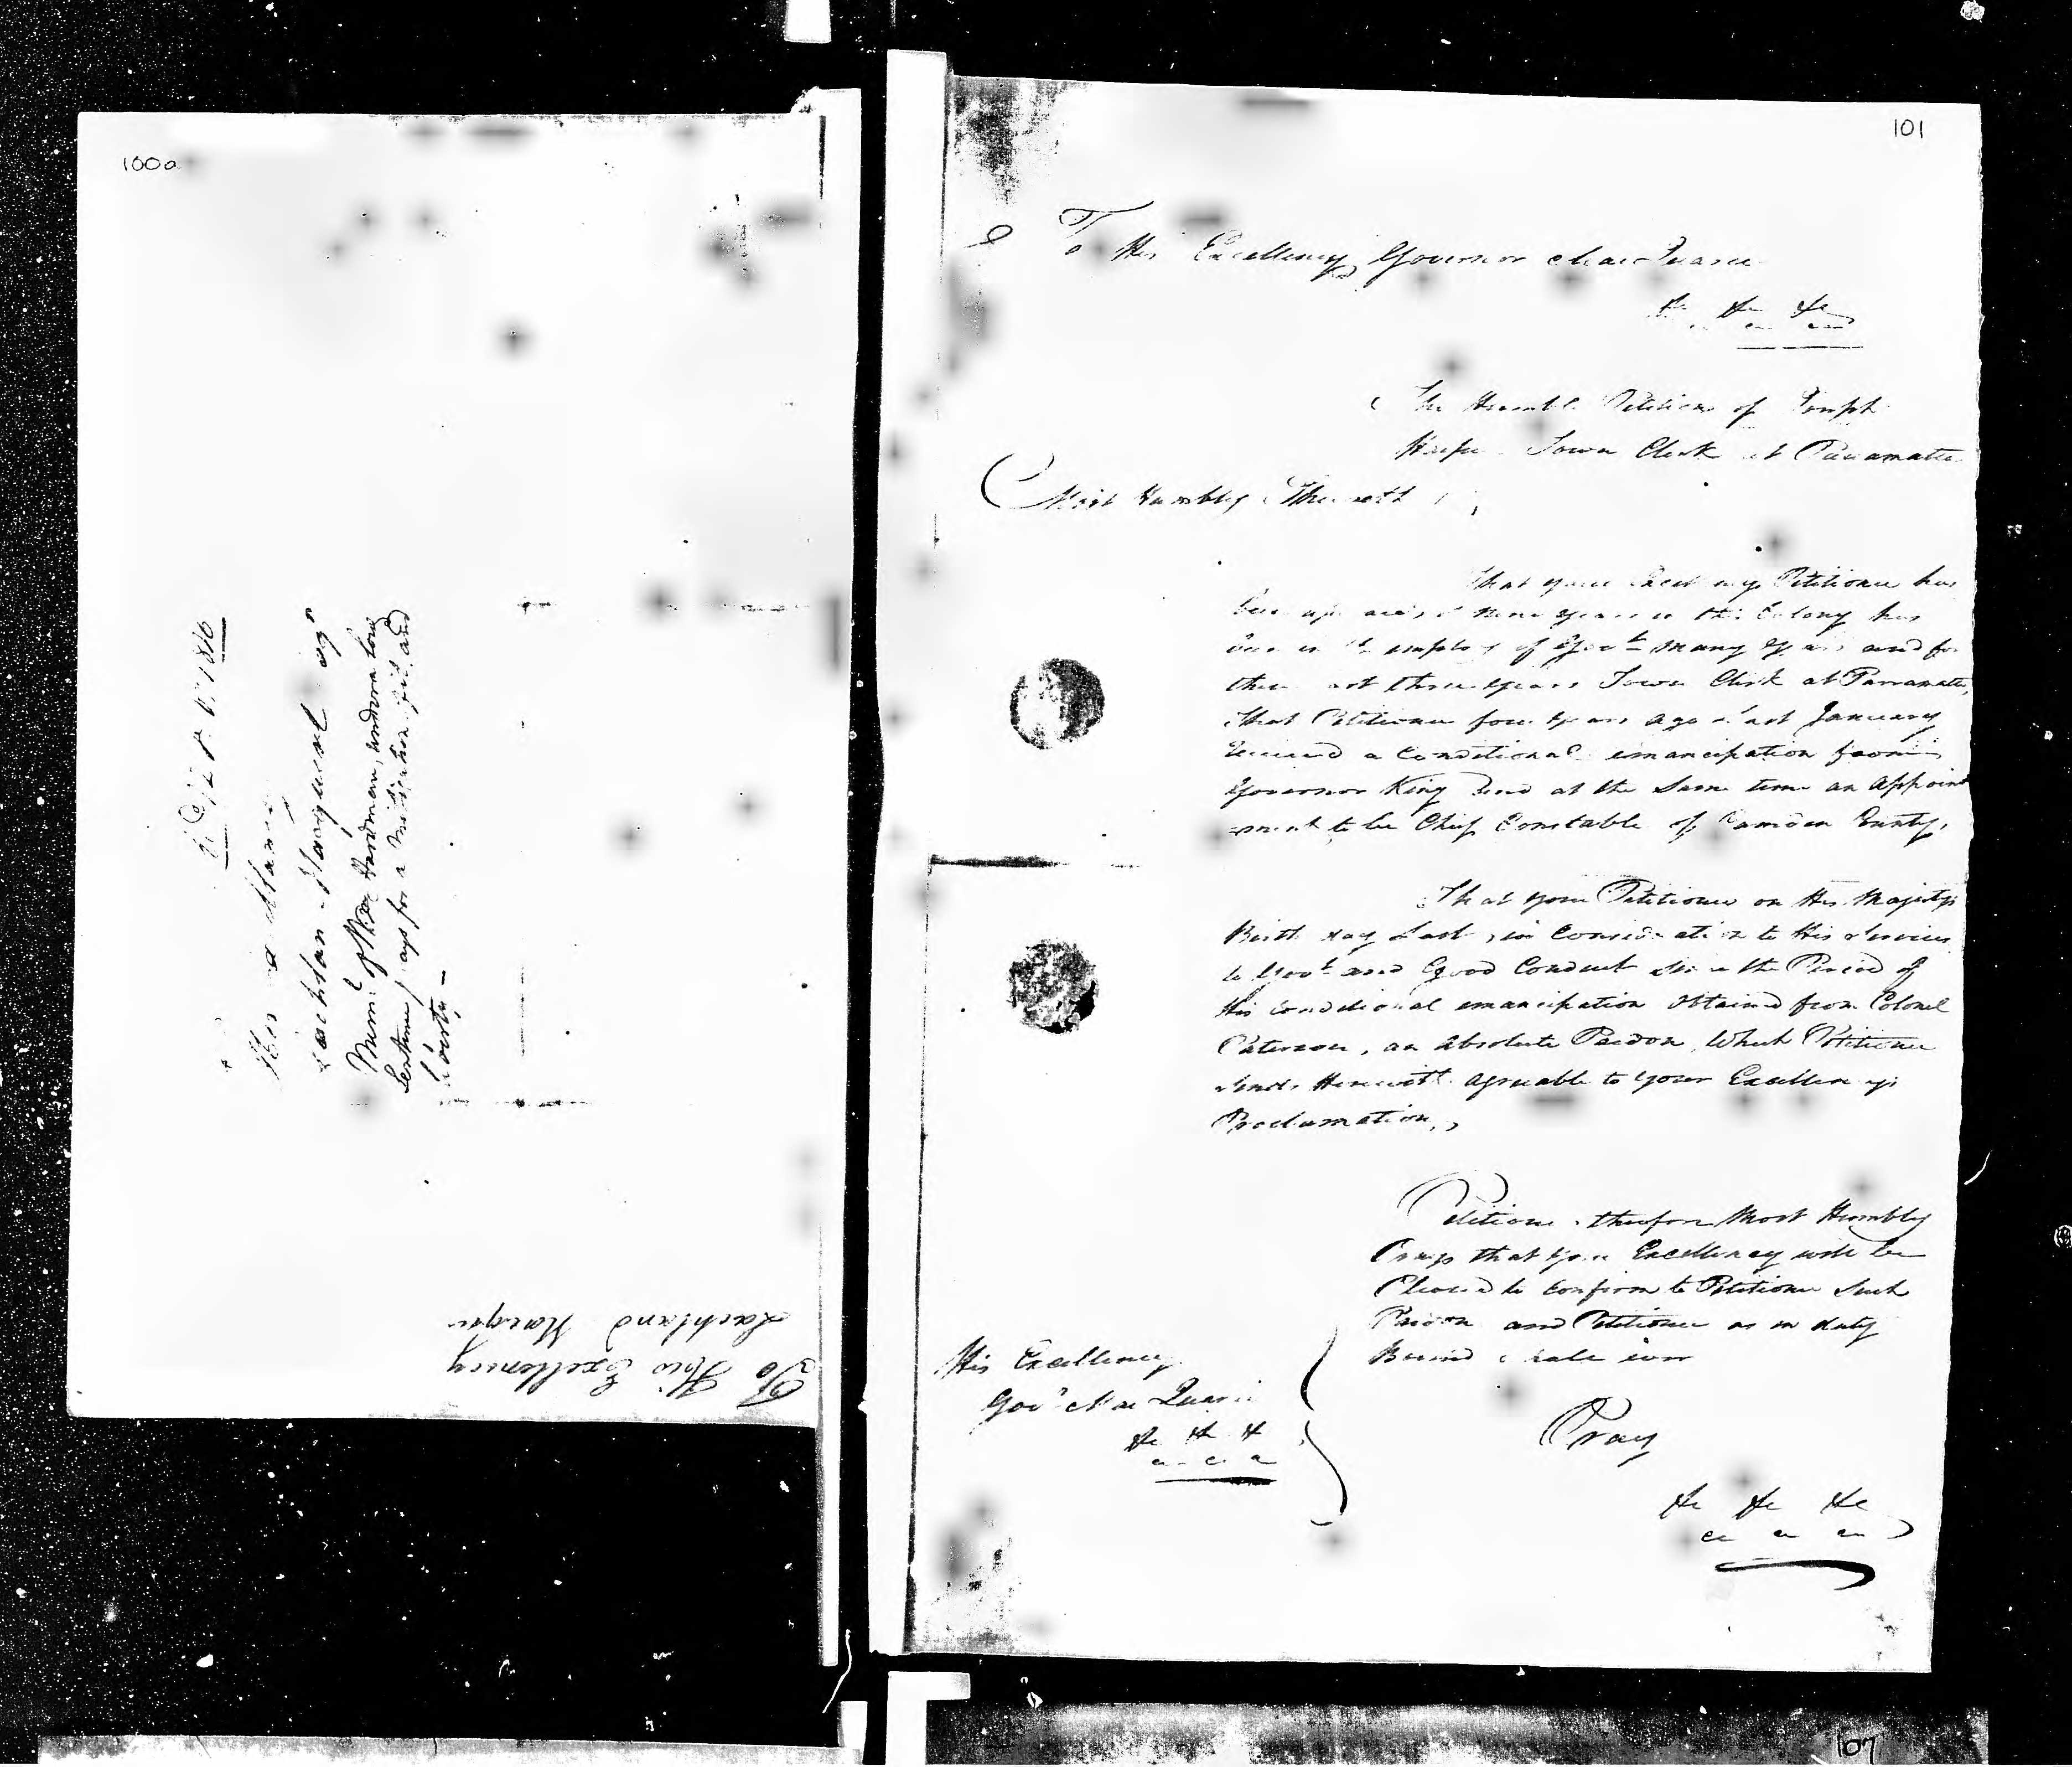 100a
Lachlan Macquarie Esqr
Meml of Wm Hardman, under a long
Sentence, prays for a mitigation of it and
liberty —
To His Excellency
Lachland Macqu
101
To His Excellency Governor MacQuarie
&c &c &c
The Humble Petition of Joseph
Town Clerk at Parramatta
Most Humbly Sheweth
That your Excellency's Petitioner has
been upwards of nine years in this Colony has
been in the employ of Govt many Years and for
these last three years Town Clerk at Parramatta,
That Petitioner four years ago last January
Received a Conditional emancipation from
Governor King and at the same time an Appoint
-ment to be Chief Constable of Camden County,
That your Petitioner on His Majestys
Birth day Last, in Consideration to His Services
to Govt and Good Conduct since the Period of
His Conditional emancipation Obtained from Colonel
Paterson, an absolute Pardon, Which Petitioner
sends Herewith agreeable to your Excellencys
Proclamation,
Petitioner therefore Most Humbly
Prays that your Excellency will be
Pleased to Confirm to Petitioner Such
Pardon and Petitioner as in duty
Bound shall ever
Pray
&c &c &c
His Excellency
Govr MacQuarie
&c &c &c
107